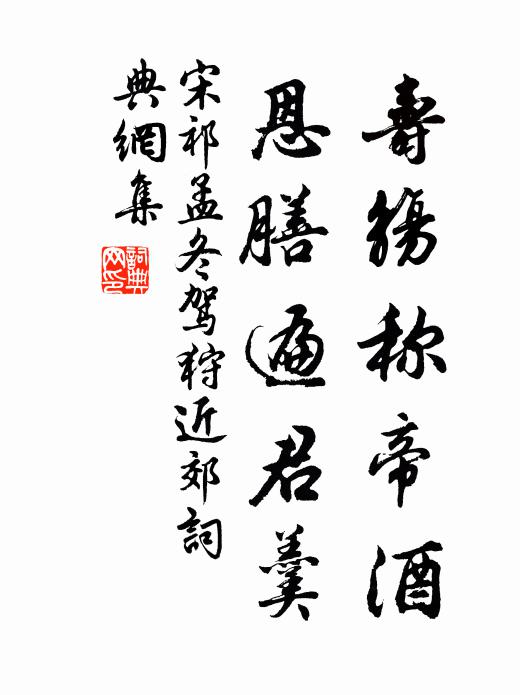 壽觴称帝酒
恩膳遍君羹
宋祁孟冬驾狩近郊詞
典網集
詞典
网印